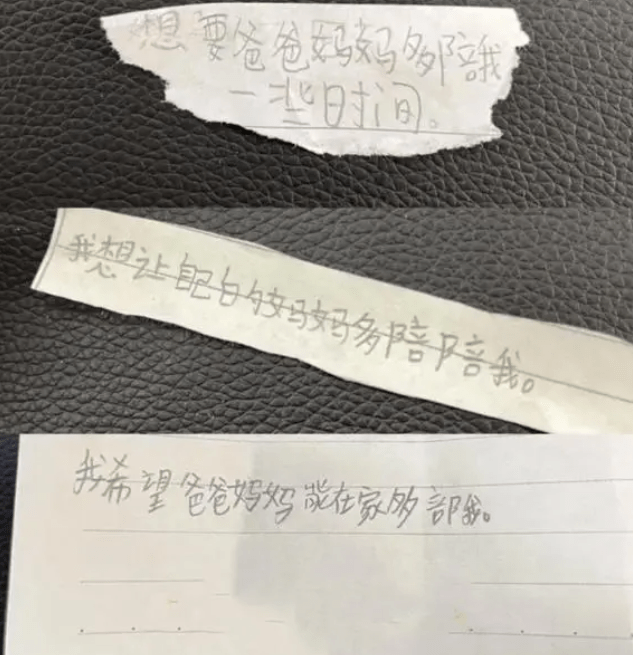 想要爸爸妈妈多陪我
一些时间。
我想让自己的妈妈多陪陪我。
我希望爸爸妈妈能在家多部我。